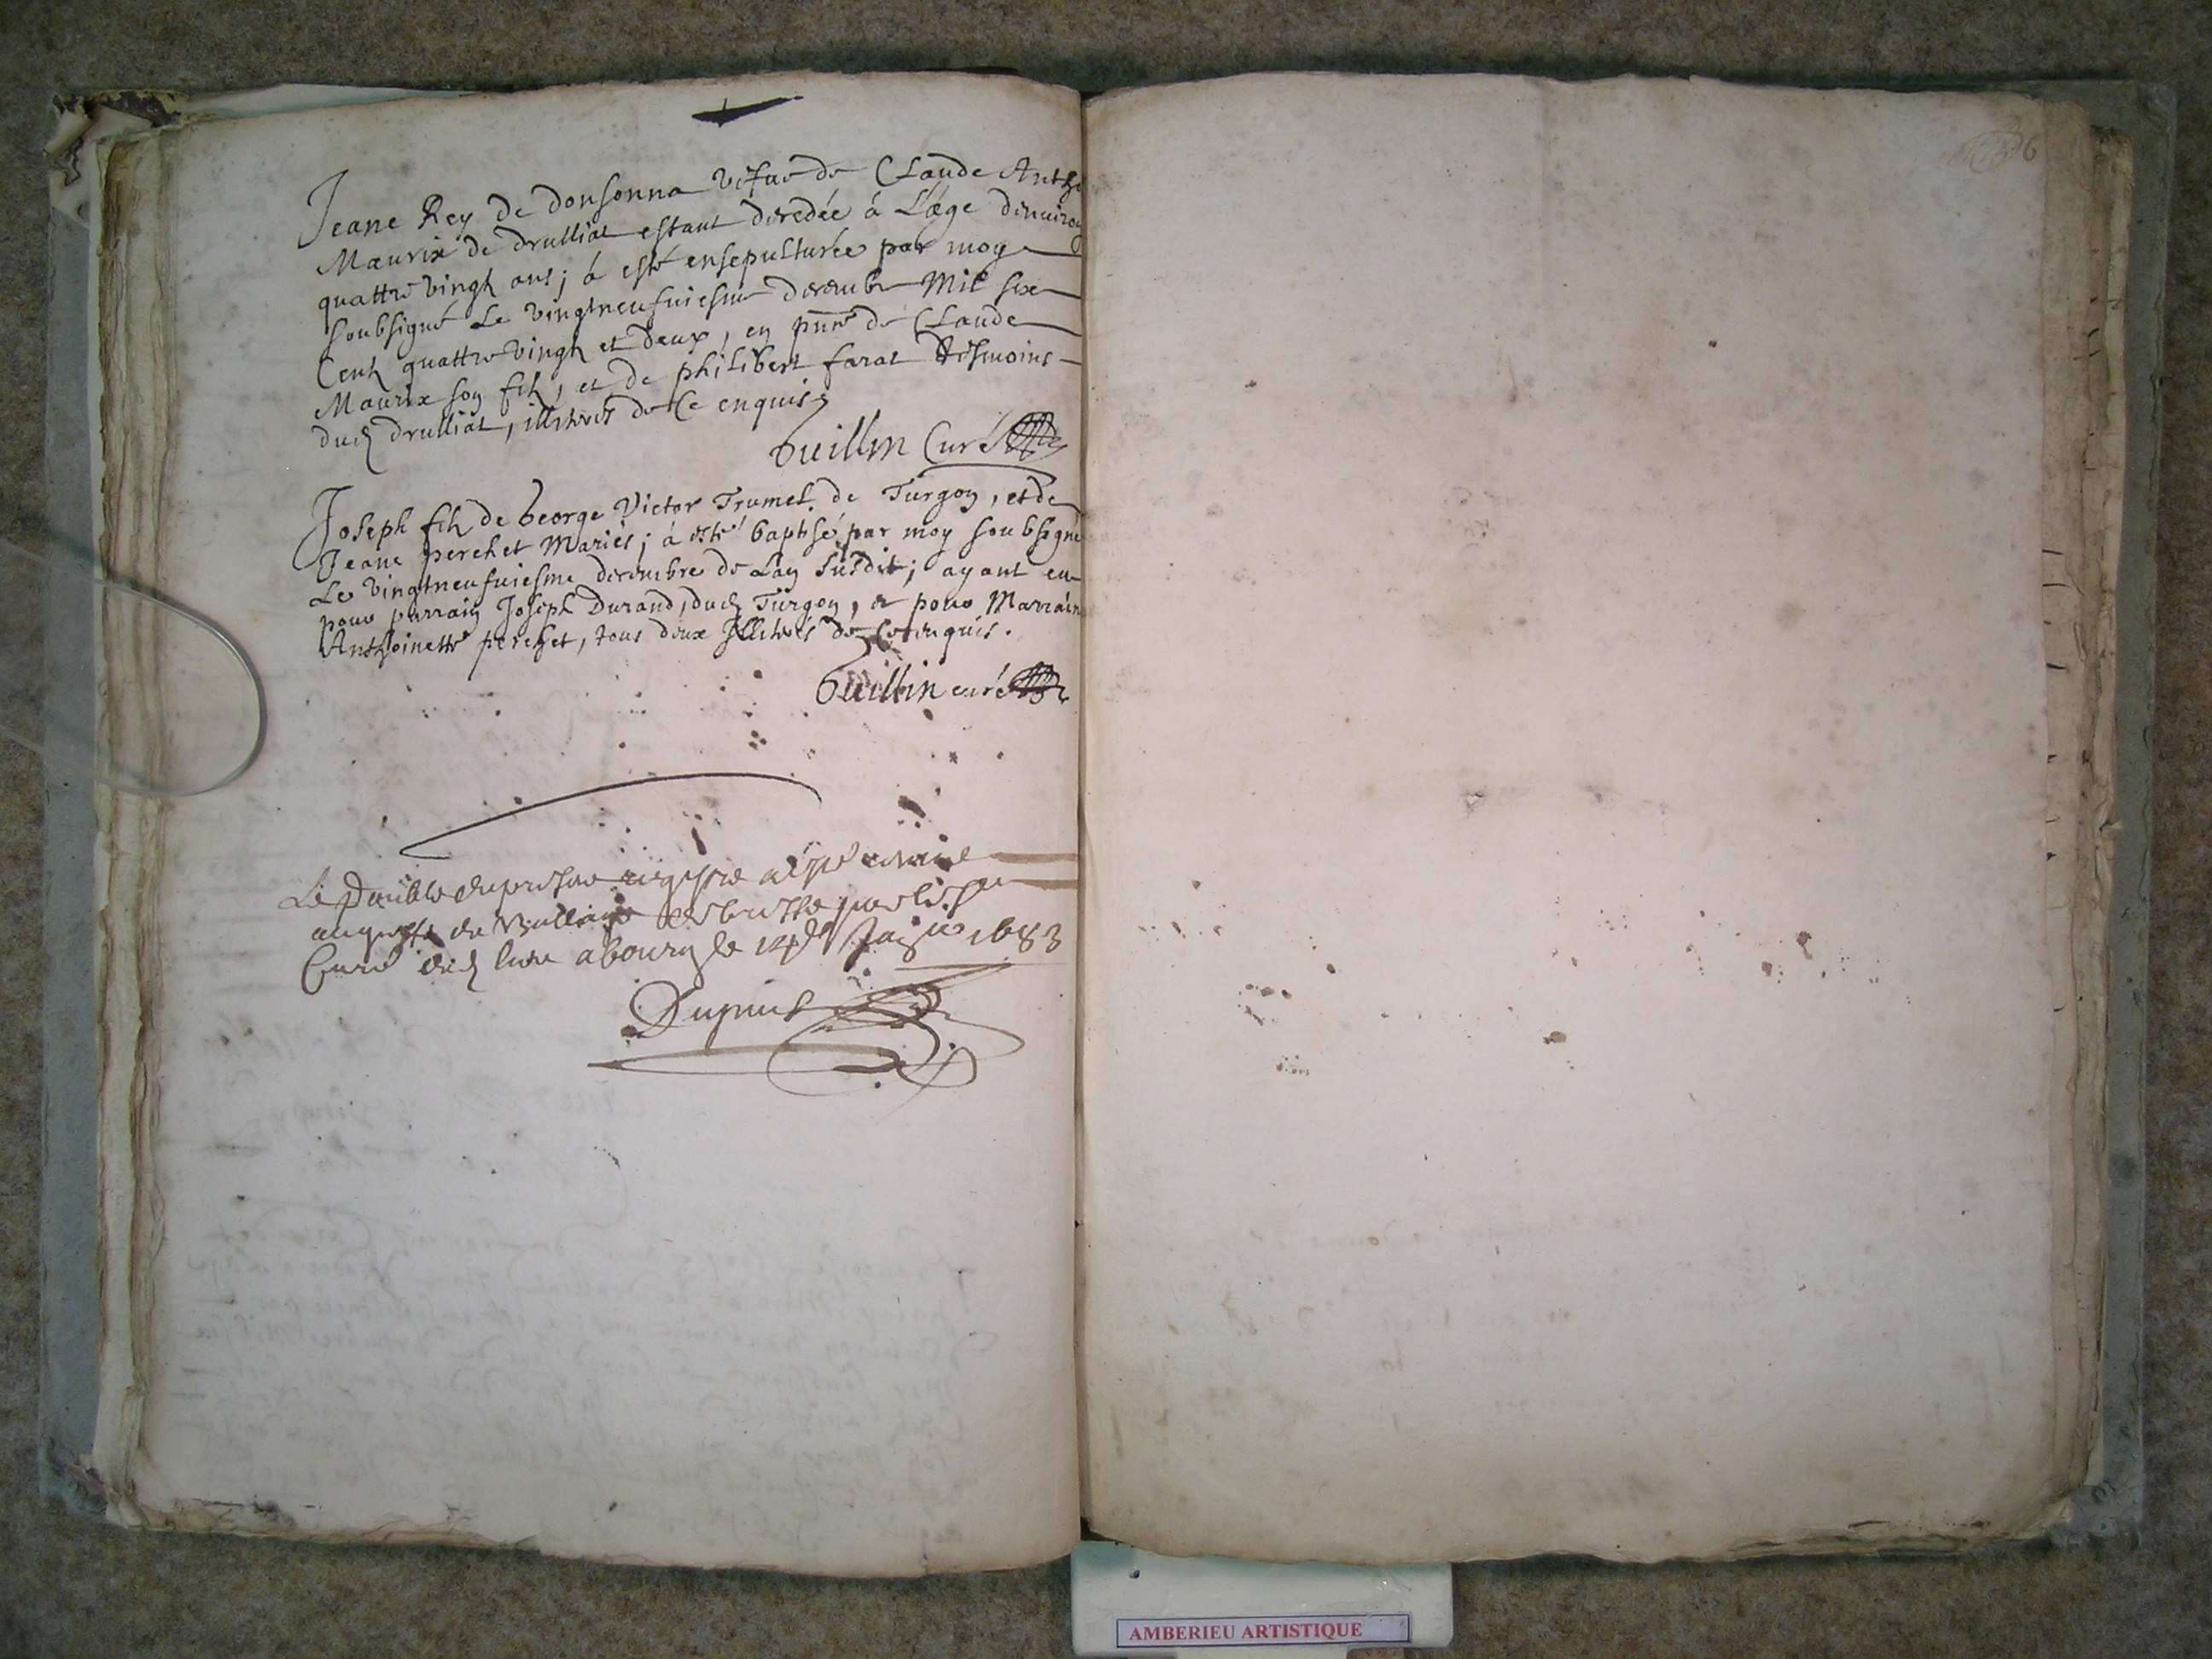 Jeane Rey de donsonna vefue de Claude Antho
Maurix de drulliat estant decedée á L'âge denuiron
quattre vingh ans; á esté ensepulturée par moy
soubsigné Le vingtneufuiesme decembr Mil six
Cent quattre vingh et deux, en pnce de Claude
Maurix son fils, et de philibert farat tesmoins
dud drulliat, illiterés de Ce enquis
Guillin Curé
Joseph fils de George Victor Trumel de Turgon, et de
Jeane perchet Mariés; á esté baptisé par moy soubsigné
Le vingtneufuiesme decembre de Lan susdit; ayant eu
pour parrain Joseph Durand, dud Turgon, et pour Marrain
Anthoinette perchet, tous deux Illiterés de Ce enquis.
Guillin curé
Le Double du present registre a esté remis
au greffe du Bailliage de bresse par le sr
Curé dud lieu a bourg le 14e 1683
Dupuis
6
AMBERIEU ARTISTIQUE